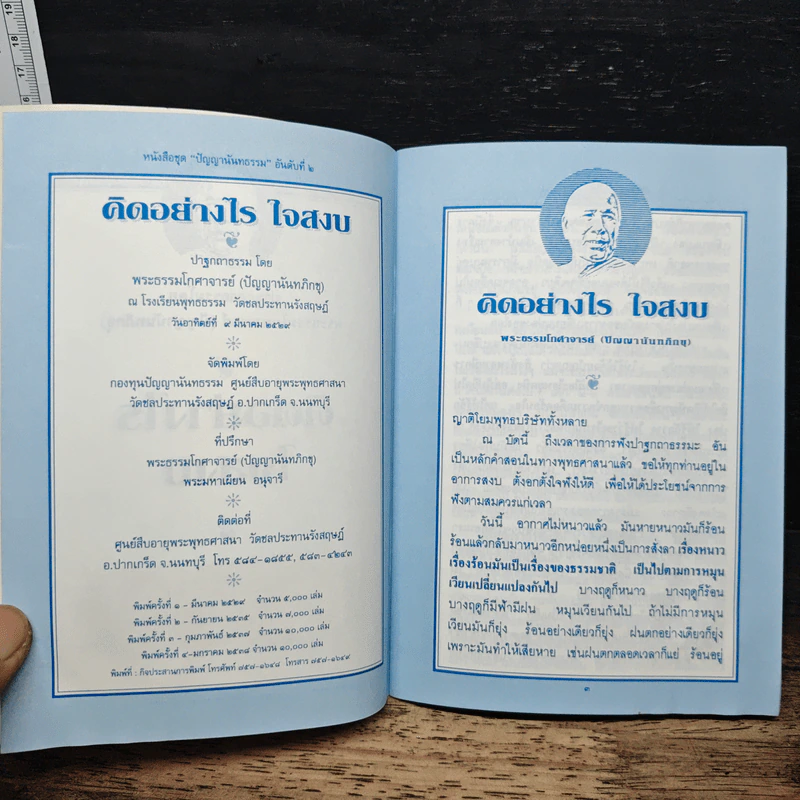 หนังสือชุด "ปัญญานันทธรรม" อันดับที่ ๒
คิดอย่างไร ใจสงบ
ปาฐกถาธรรม โดย
พระธรรมโกศาจารย์ (ปัญญานันทภิกขุ)
ณ โรงเรียนพุทธธรรม วัดชลประทานรังสฤษฎ์
วันอาทิตย์ที่ ๙ มีนาคม ๒๕๒๙
จัดพิมพ์โดย
กองทุนปัญญานันทธรรม ศูนย์สืบอายุพระพุทธศาสนา
วัดชลประทานรังสฤษฎ์ อ.ปากเกร็ด จ.นนทบุรี
ที่ปรึกษา
พระธรรมโกศาจารย์ (ปัญญานันทภิกขุ)
พระมหาเผียน อนุจารี
ติดต่อที่
ศูนย์สืบอายุพระพุทธศาสนา วัดชลประทานรังสฤษฎ์
อ.ปากเกร็ด จ.นนทบุรี โทร ๕๘๔-๑๘๕๕, ๕๘๓-๔๒๔๓
พิมพ์ครั้งที่ ๑ - มีนาคม ๒๕๒๙ จำนวน ๕,๐๐๐ เล่ม
พิมพ์ครั้งที่ ๒ - กันยายน ๒๕๓๕ จำนวน ๗,๐๐๐ เล่ม
พิมพ์ครั้งที่ ๓ - กุมภาพันธ์ ๒๕๓๗ จำนวน ๑๐,๐๐๐ เล่ม
พิมพ์ครั้งที่ ๔-มกราคม ๒๕๓๘ จำนวน ๑๐,๐๐๐ เล่ม
พิมพ์ที่ : กิจประสานการพิมพ์ โทรศัพท์ ๗๕๗-๑๖๔๘ โทรสาร ๗๕๗-๑๖๔๙
คิดอย่างไร ใจสงบ
พระธรรมโกศาจารย์ (ปัญญานันทภิกขุ)
ญาติโยมพุทธบริษัททั้งหลาย
ณ บัดนี้ ถึงเวลาของการฟังปาฐกถาธรรมะ อัน
เป็นหลักคำสอนในทางพุทธศาสนาแล้ว ขอให้ทุกท่านอยู่ใน
อาการสงบ ตั้งอกตั้งใจฟังให้ดี เพื่อให้ได้ประโยชน์จากการ
ฟังตามสมควรแก่เวลา
วันนี้ อากาศไม่หนาวแล้ว มันหายหนาวมันก็ร้อน
ร้อนแล้วกลับมาหนาวอีกหน่อยหนึ่งเป็นการสั่งลา เรื่องหนาว
เรื่องร้อนมันเป็นเรื่องของธรรมชาติ เป็นไปตามการหมุน
เวียนเปลี่ยนแปลงกันไป บางฤดูก็หนาว บางฤดูก็ร้อน
บางฤดูก็มีฟ้ามีฝน หมุนเวียนกันไป ถ้าไม่มีการหมุน
เวียนมันก็ยุ่ง ร้อนอย่างเดียวก็ยุ่ง ฝนตกอย่างเดียวก็ยุ่ง
เพราะมันทำให้เสียหาย เช่นฝนตกตลอดเวลาก็แย่ ร้อนอยู่
๓
16
17
18
19